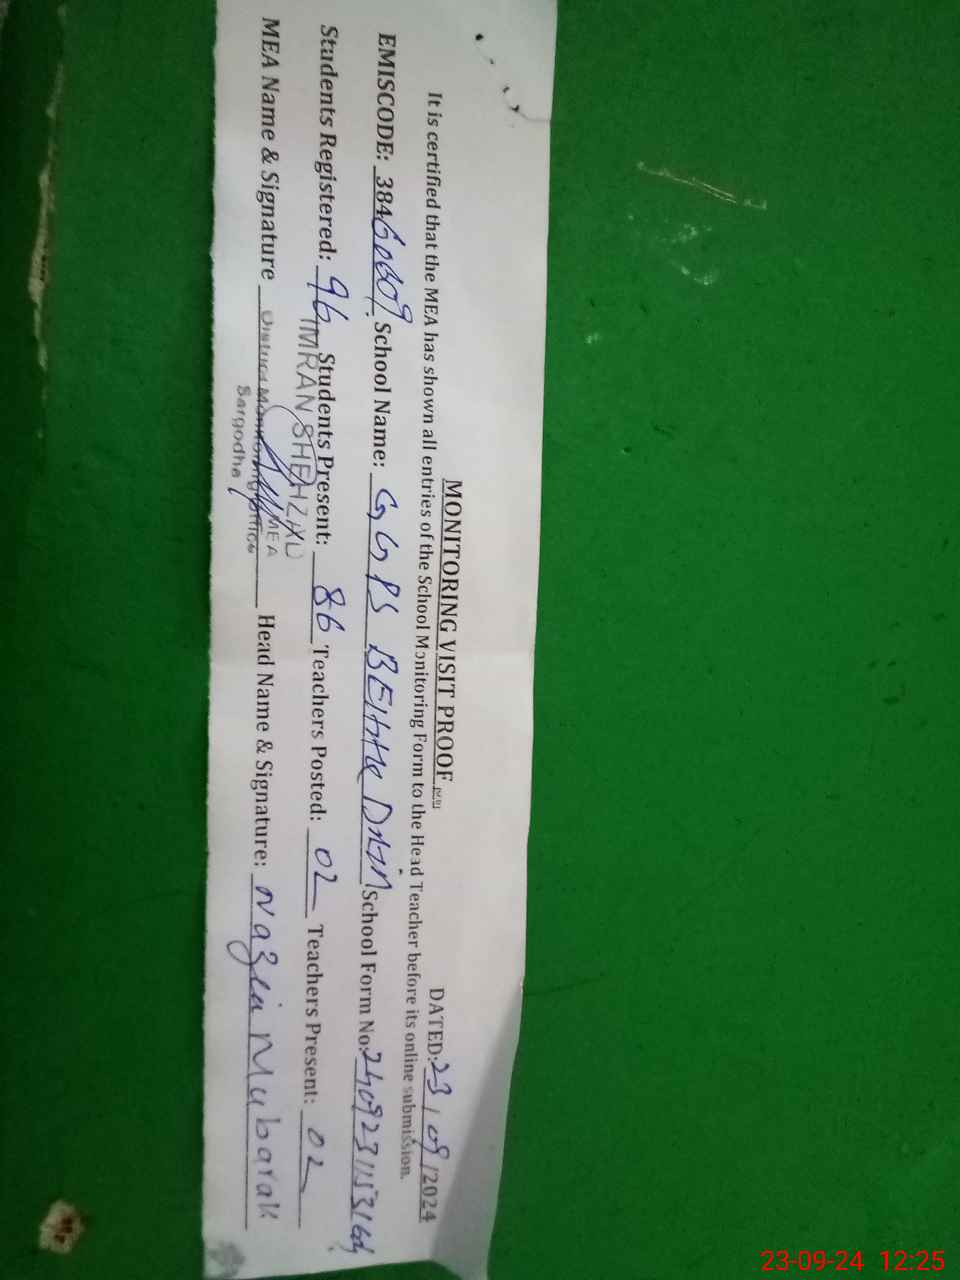 MONITORING VISIT PROOF
DATED: 23/09/2024
It is certified that the MEA has shown all entries of the School Monitoring Form to the Head Teacher before its online submission.
EMISCODE: 384 School Name: GGPS School Form No:
Students Registered: 96 Students Present: 86 Teachers Posted: 02 Teachers Present: 02
IMRAN SHEHZAD
MEA
MEA Name & Signature Head Name & Signature: Nazia Mubarak
District Monitoring Office
Sargodha
23-09-24 12:25